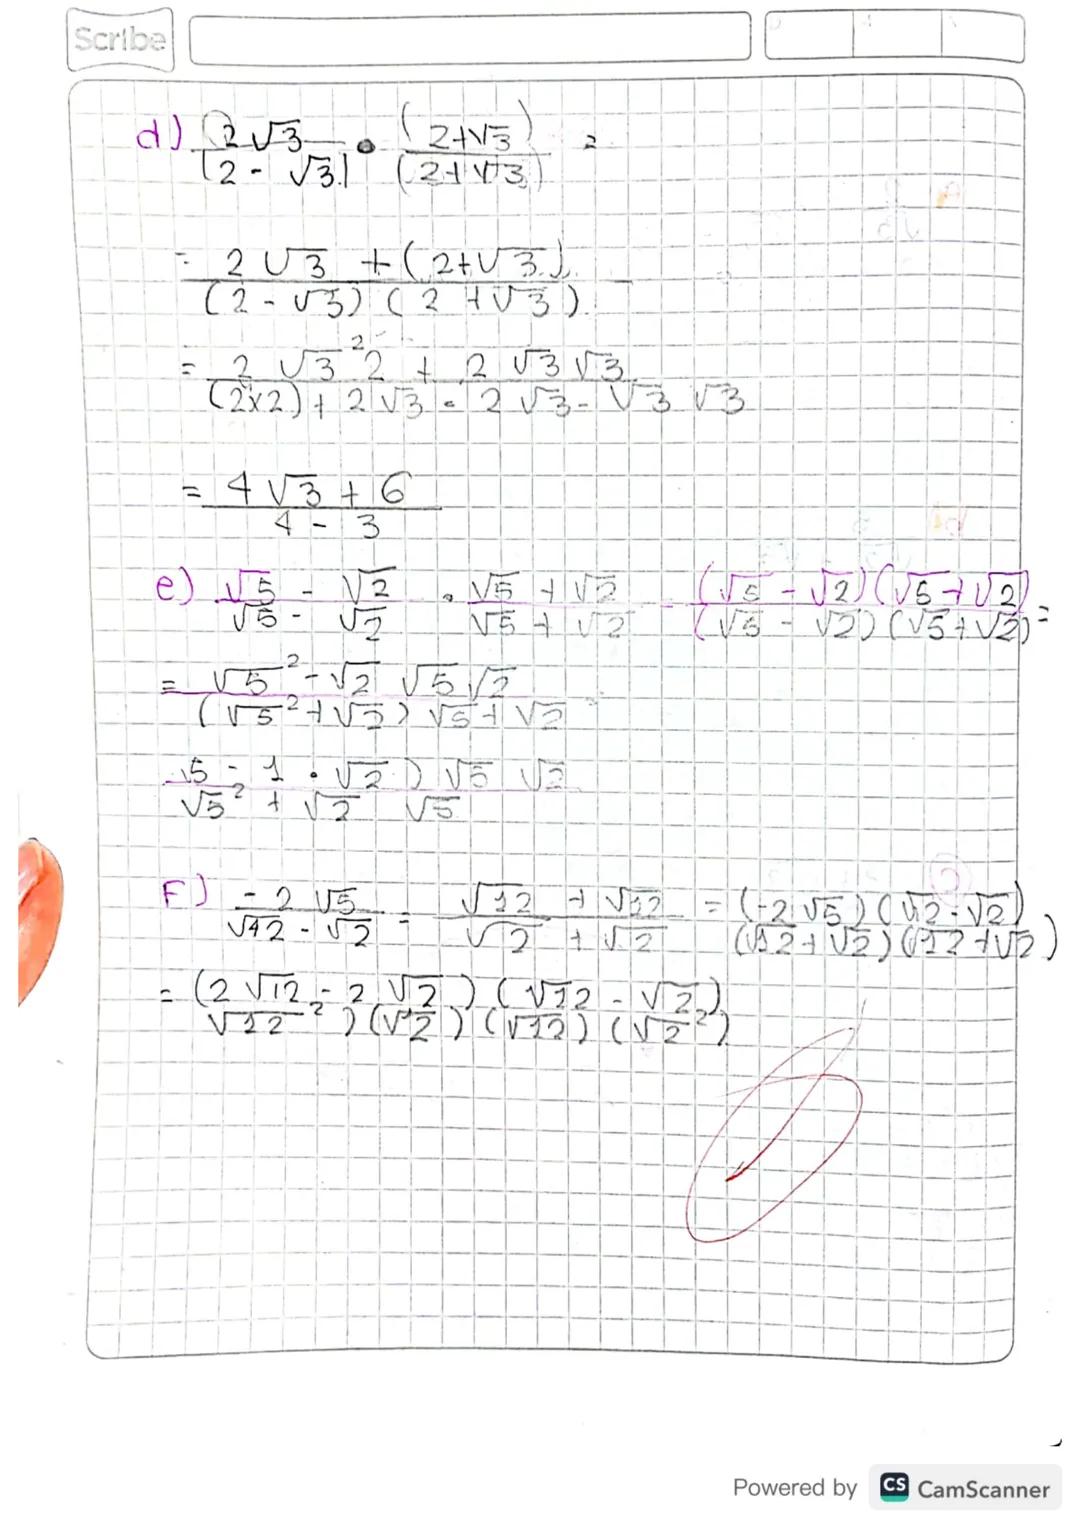 Scribe
d) 2√3 / (2 - √3) • (2+√3) / (2+√3) =
= 2√3 + (2+√3) / (2 - √3) (2 + √3).
= 2 √3² 2 + 2 √3 √3 / (2x2) + 2√3 - 2√3 - √3 √3
= 4√3 + 6 / 4 - 3
e) √5 - √2 / √5 - √2 • √5 + √2 / √5 + √2 - (√5 - √2)(√5+√2) / (√5 - √2)(√5+√2) =
= √5² - √2 √5 √2 / (√5² + √2) √5 + √2
√5 - 1 • √2 ) √5 √2 / √5² + √2 √5
F) -2 √5 / √42 - √2 = √12 + √12 / √2 + √2 = (-2√5) (√12 - √2) / (√12 + √2) (√12 + √2)
= (2 √12 - 2 √2 ) (√12 - √2) / √12² ) (√12 ) (√12) (√2²)
Powered by CS CamScanner